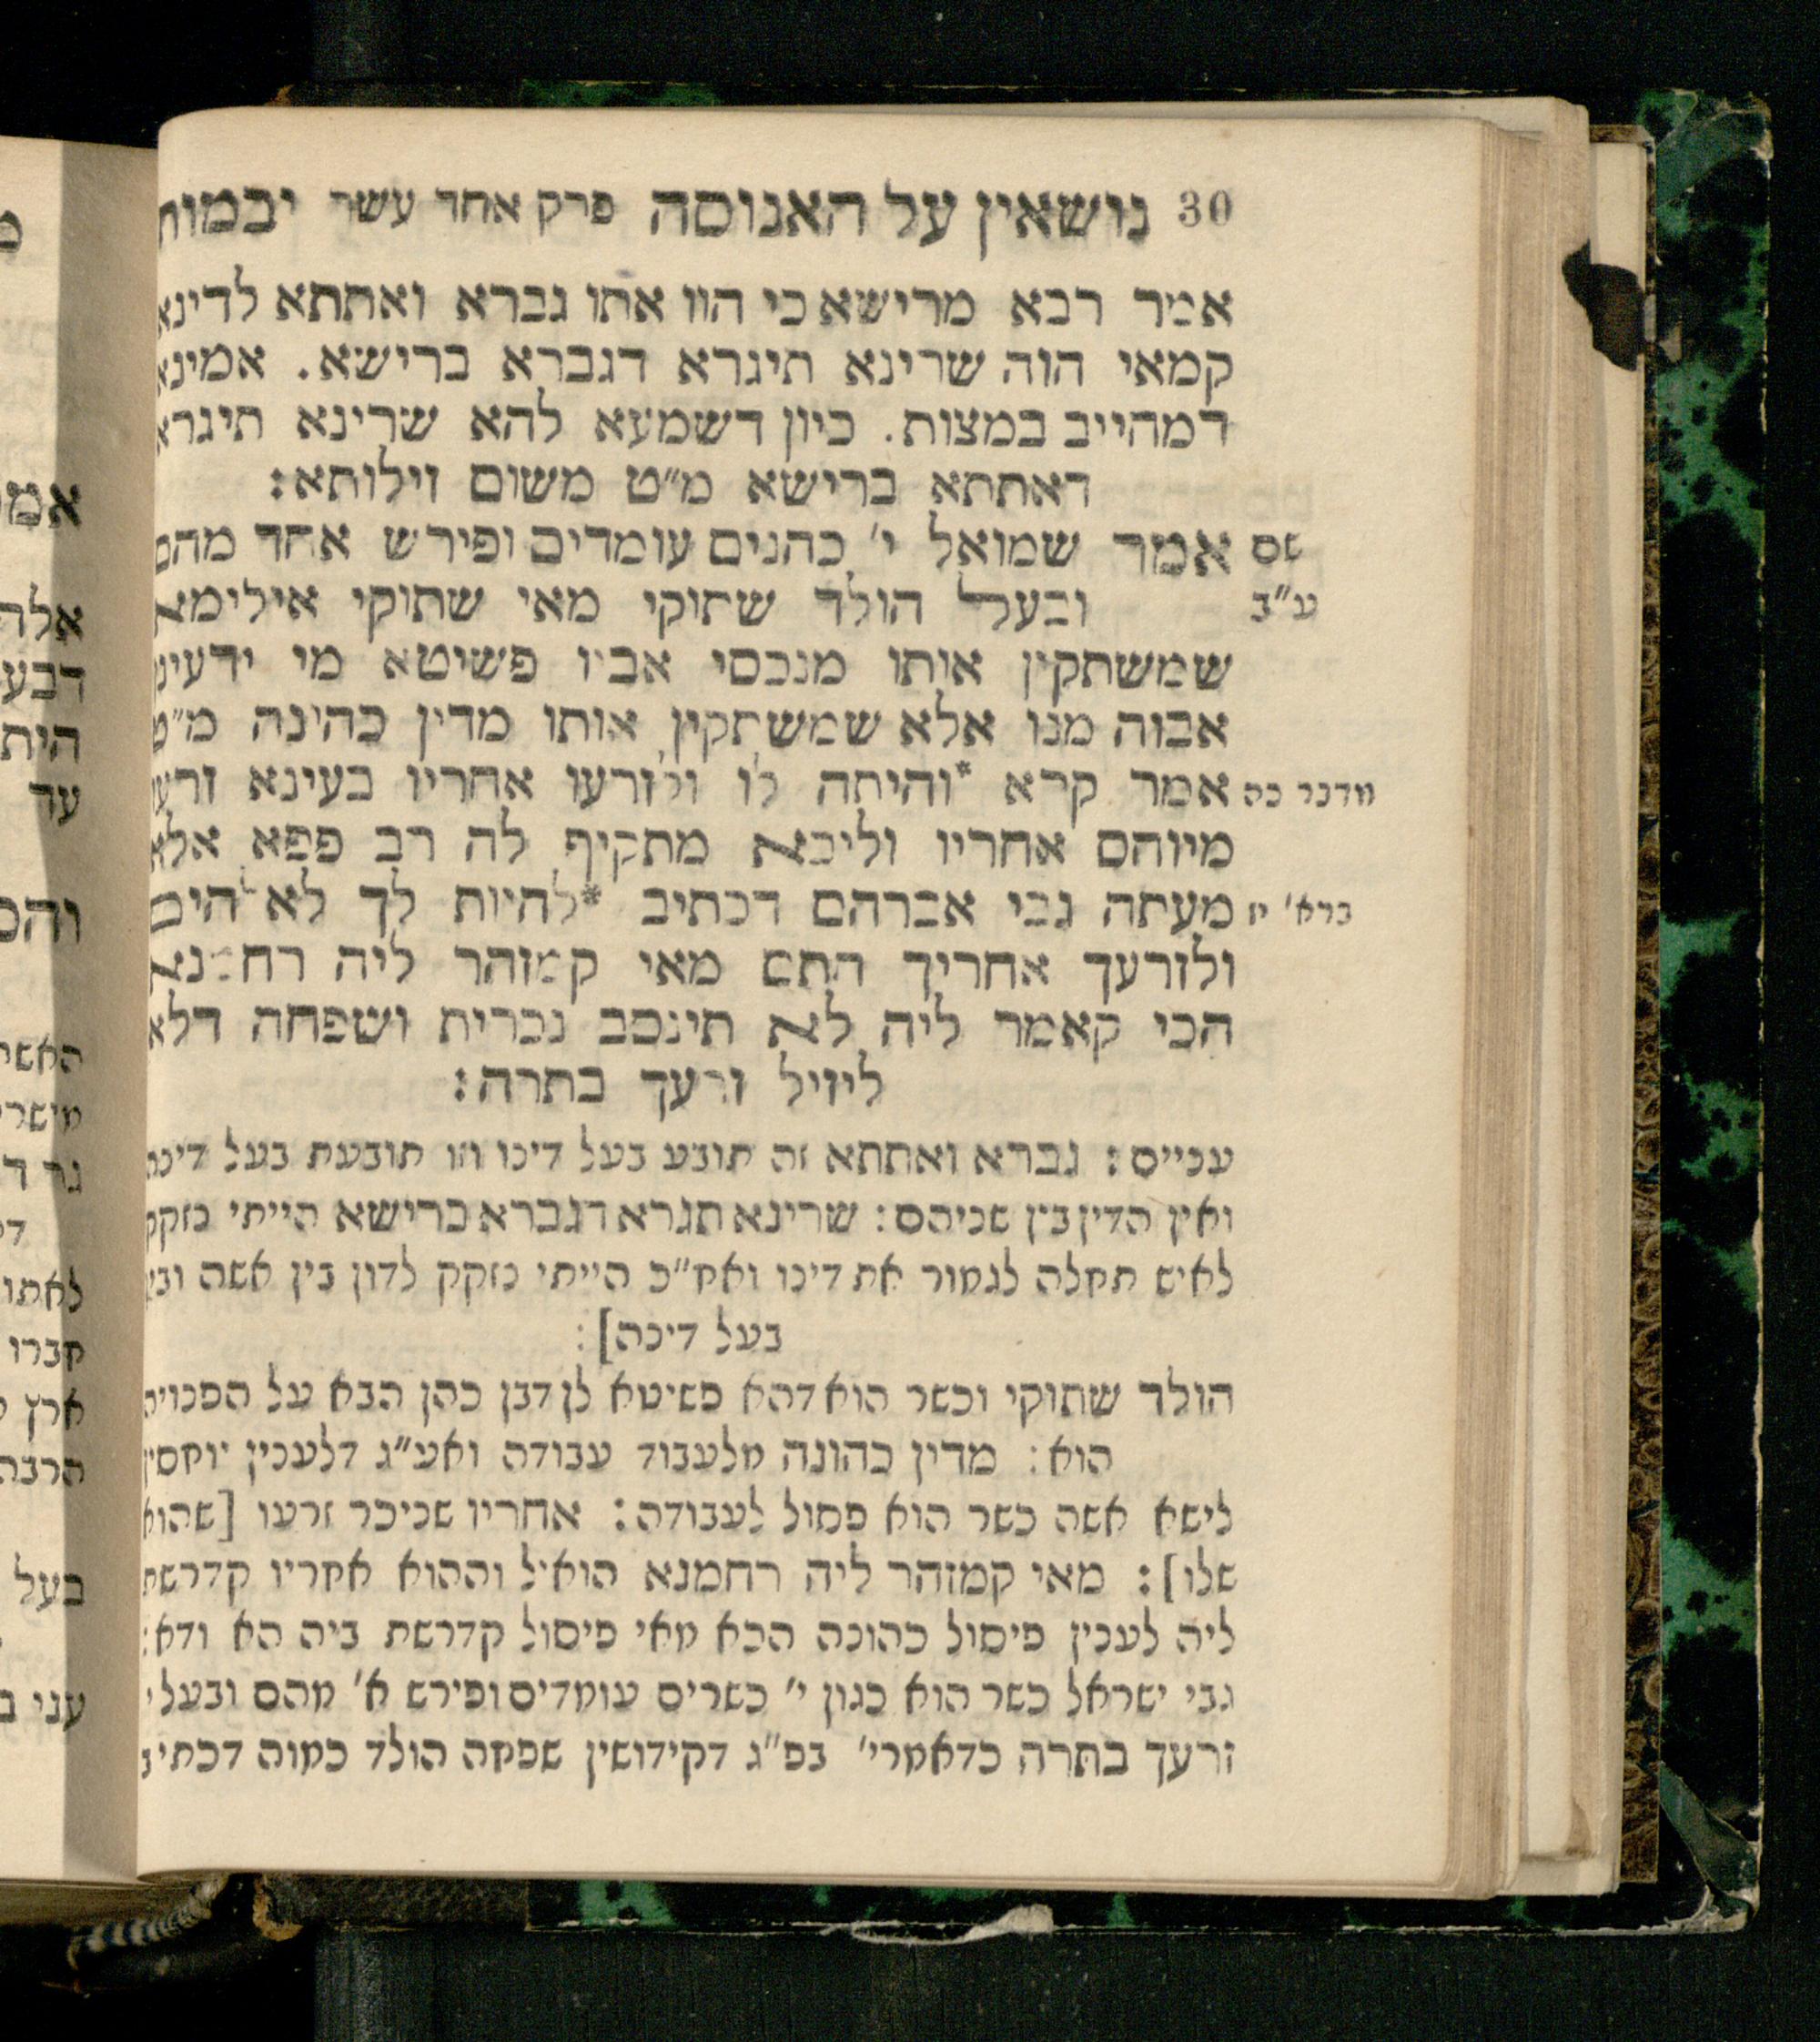 30 נושאין על האנוסה פרק אחד עשר יבמות
אמר רבא מרישא כי הוו אתו גברא ואתתא לדינא
קמאי הוה שרינא תיגרא דגברא ברישא. אמינא
דמהייב במצות. כיון דשמעא להא שרינא תיגרא
דאתתא ברישא מ״ט משום זילותא:
שם אמר שמואל י׳ כהנים עומדים ופירש אחד מהם
ע״ב ובעל הולד שתוקי מאי שתוקי אילימא
שמשתקין אותו מנכסי אביו פשיטא מי ידעינן
אבוה מנו אלא שמשתקין אותו מדין כהינה מ״ט
מדבר כה אמר קרא *והיתה לו ולזרעו אחריו בעינא זרעו
מיוהם אחריו וליכא מתקיף לה רב פפא אלא
ברא׳ יז מעתה גבי אברהם דכתיב *להיות לך לאלהים
ולזרעך אחריך התם מאי קמזהר ליה רחמנא
הכי קאמר ליה לא תינסב נכרית ושפחה דלא
ליזיל זרעך בתרה:
עכייס: גברא ואתתא זה תובע בעל דינו וזו תובעת בעל דינה
ואין הדין בין שניהם: שרינא תגרא דגברא ברישא הייתי נזקק
לאיש תחלה לגמור את דינו ואח״כ הייתי נזקק לדון בין אשה ובין
בעל דינה]:
הולד שתוקי וכשר הוא דהא פשיטא לן דבן כהן הבא על הפנויה
הוא: מדין כהונה מלעבוד עבודה ואע״ג דלענין יוחסין
לישא אשה כשר הוא פסול לעבודה: אחריו שניכר זרעו [שהוא
שלו]: מאי קמזהר ליה רחמנא הואיל וההוא אחריו קדרשת
ליה לענין פיסול כהונה הכא מאי פיסול קדרשת ביה הא ודאי
גבי ישראל כשר הוא כגון י׳ כשרים עומדים ופירש א׳ מהם ובעל:
זרעך בתרה כדאמרי׳ בפ״ג דקידושין שפחה הולד כמוה דכתיב